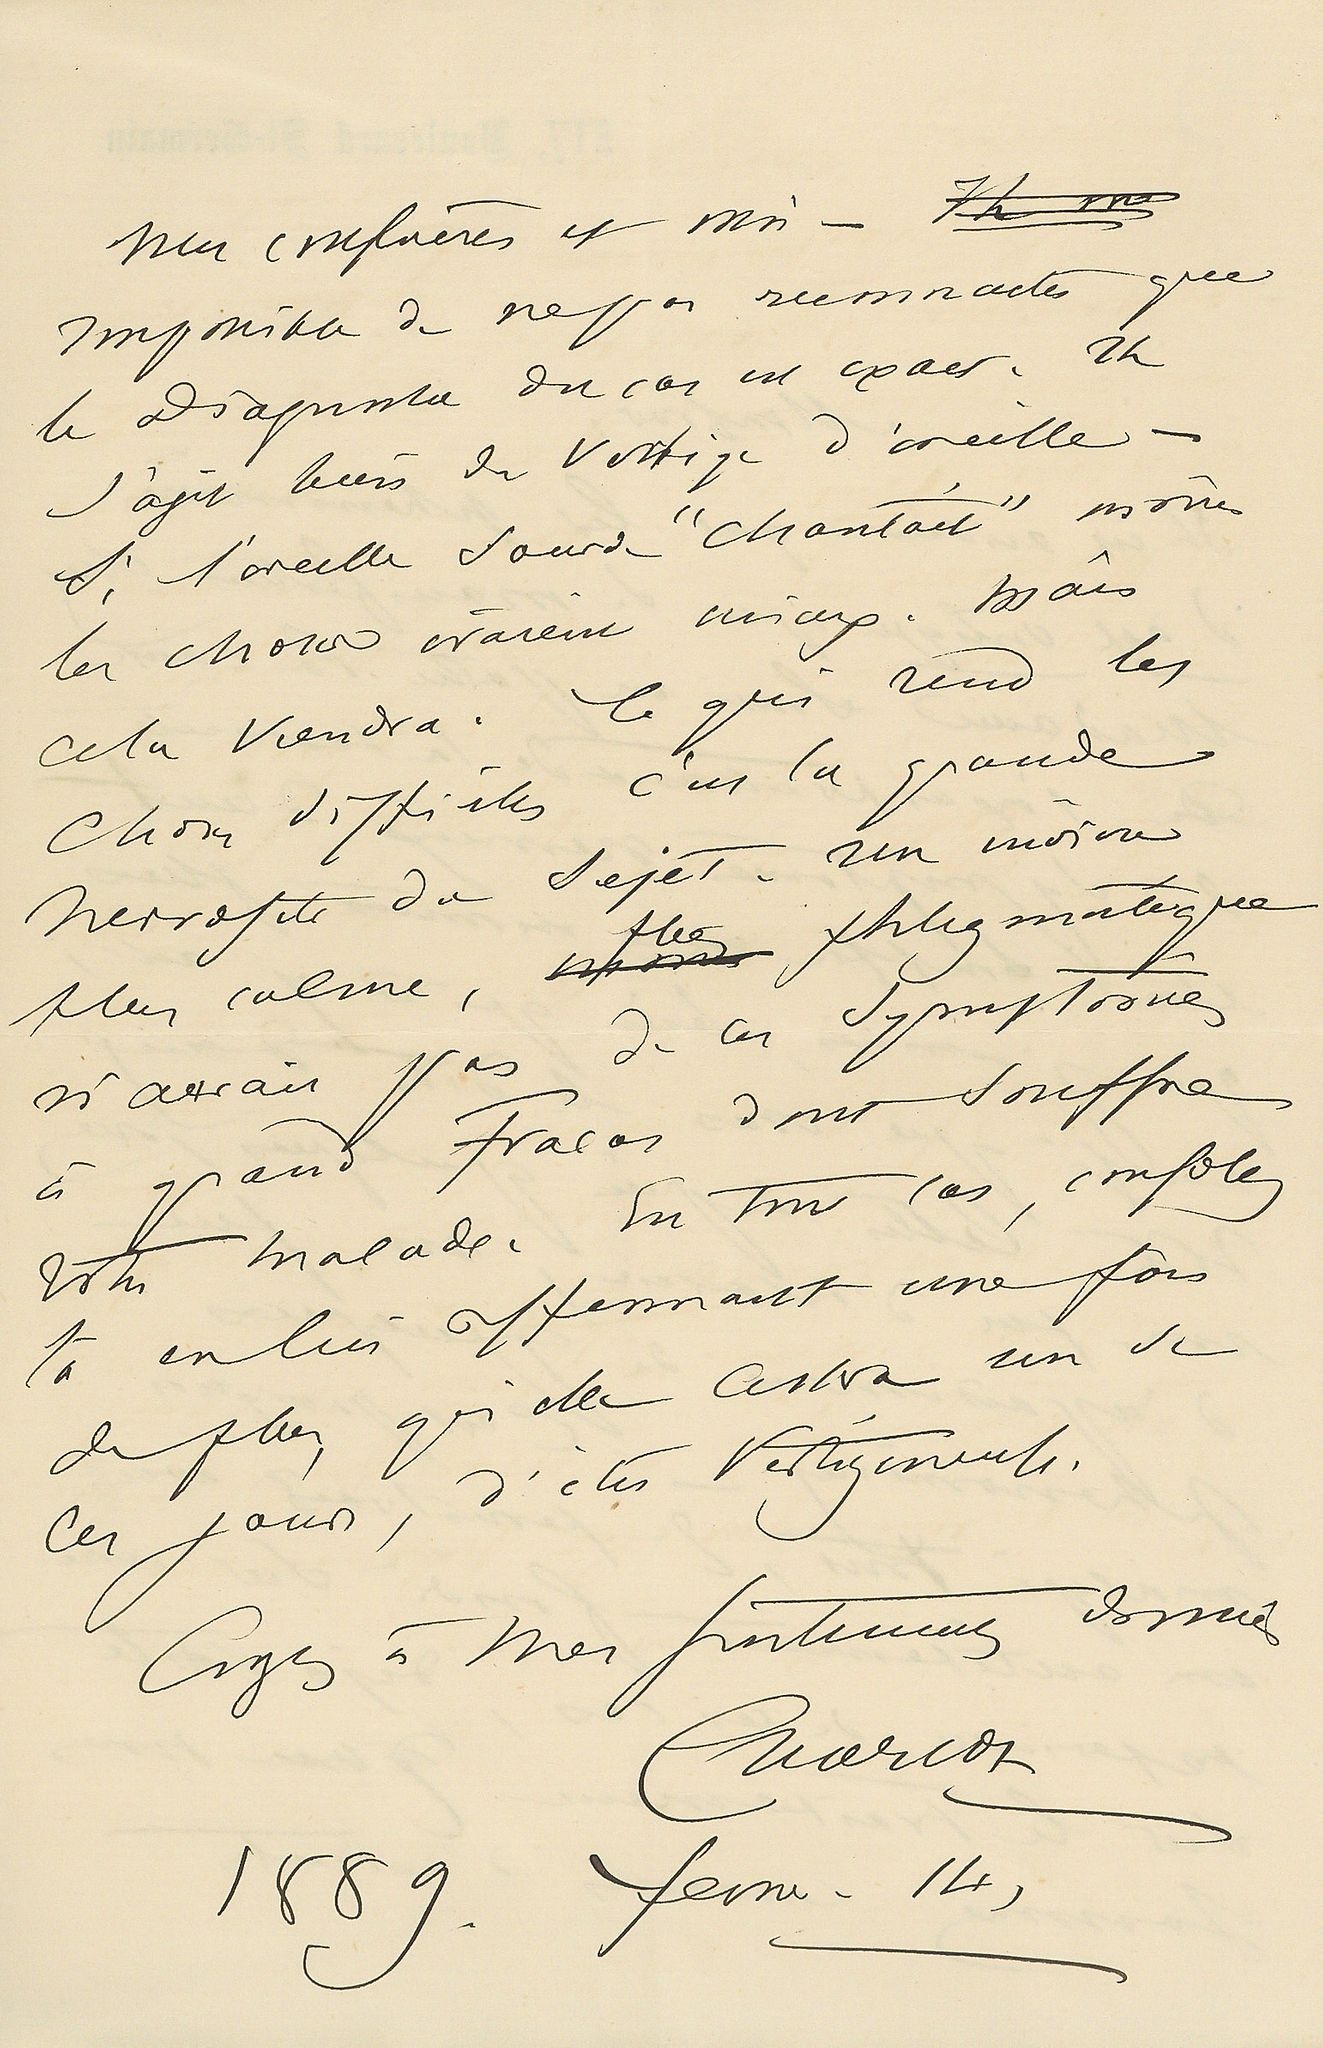 mes confrères et moi —
Impossible de ne pas reconnaître que
le Diagnostic du cas est exact. Il
s'agit bien du Vertige d'oreille —
Si l'oreille sourde "chantait" moins
les choses iraient mieux. Mais
cela viendra. Ce qui rend les
choses difficiles c'est la grande
nervosité du sujet. Un individu
plus calme, plus phlegmatique
n'aurait pas de ces symptômes
à grand fracas dont souffre
votre malade. En tout cas, consolez
la en lui affirmant une fois
de plus, qu'elle cessera un de
ces jours, d'être Vertigineuse.
Croyez à mes sentiments dévoués
Charcot
1889. fevrier. 14,